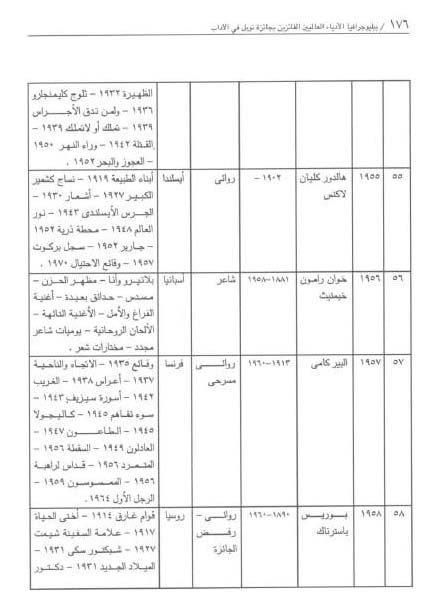 ١٧٦ / ببليوجرافيا الأدباء العالميين الفائزين بجائزة نوبل في الآداب
الظهيرة ١٩٣٢ – ثلوج كليمنجارو
١٩٣٦ – ولمن تدق الأجراس
١٩٣٩ – تملك أو لاتملك ١٩٣٩ –
القتلة ١٩٤٢ – وراء النهر ١٩٥٠
– العجوز والبحر ١٩٥٢ .
٥٥ ١٩٥٥ هالدور كليان ١٩٠٢ – روائى أيسلندا أبناء الطبيعة ١٩١٩ – نساج كشمير
لاكنس الكبير ١٩٢٧ – أشعار ١٩٣٠ –
الجرس الأيسلندى ١٩٤٣ – نور
العالم ١٩٤٨ – محطة ذرية ١٩٥٢
– جاربر ١٩٥٢ – سجل بركوت
١٩٥٧ – وقائع الاحتيال ١٩٧٠ .
٥٦ ١٩٥٦ خوان رامون ١٨٨١–١٩٥٨ شاعر أسبانيا بلاتيرو وأنا – مظهر الحزن –
خيمنيث مسدس – حدائق بعيدة – أغنية
الفراغ والأمل – الأغنية التائهة –
الألحان الروحانية – يوميات شاعر
مجدد – مختارات شعر .
٥٧ ١٩٥٧ البير كامى ١٩١٣–١٩٦٠ روائى – فرنسا وقائع ١٩٣٥ – الاتجاه والناحية
مسرحى ١٩٣٧ – أعراس ١٩٣٨ – الغريب
١٩٤٢ – أسورة سيزيف ١٩٤٣ –
سوء تفاهم ١٩٤٥ – كاليجولا
١٩٤٥ – الطاعون ١٩٤٧ –
العادلون ١٩٤٩ – السقطة ١٩٥٦ –
المتمرد ١٩٥٦ – قداس لراهبة
١٩٥٦ – الممسوسون ١٩٥٩ –
الرجل الأول ١٩٦٤ .
٥٨ ١٩٥٨ بوريس ١٨٩٠–١٩٦٠ روائى – روسيا قوام غارق ١٩١٤ – أختى الحياة
باسترناك رفض ١٩١٧ – علامة السفينة شيمت
الجائزة ١٩٢٧ – شبكتور سكى ١٩٣١ –
الميلاد الجديد ١٩٣١ – دكتور